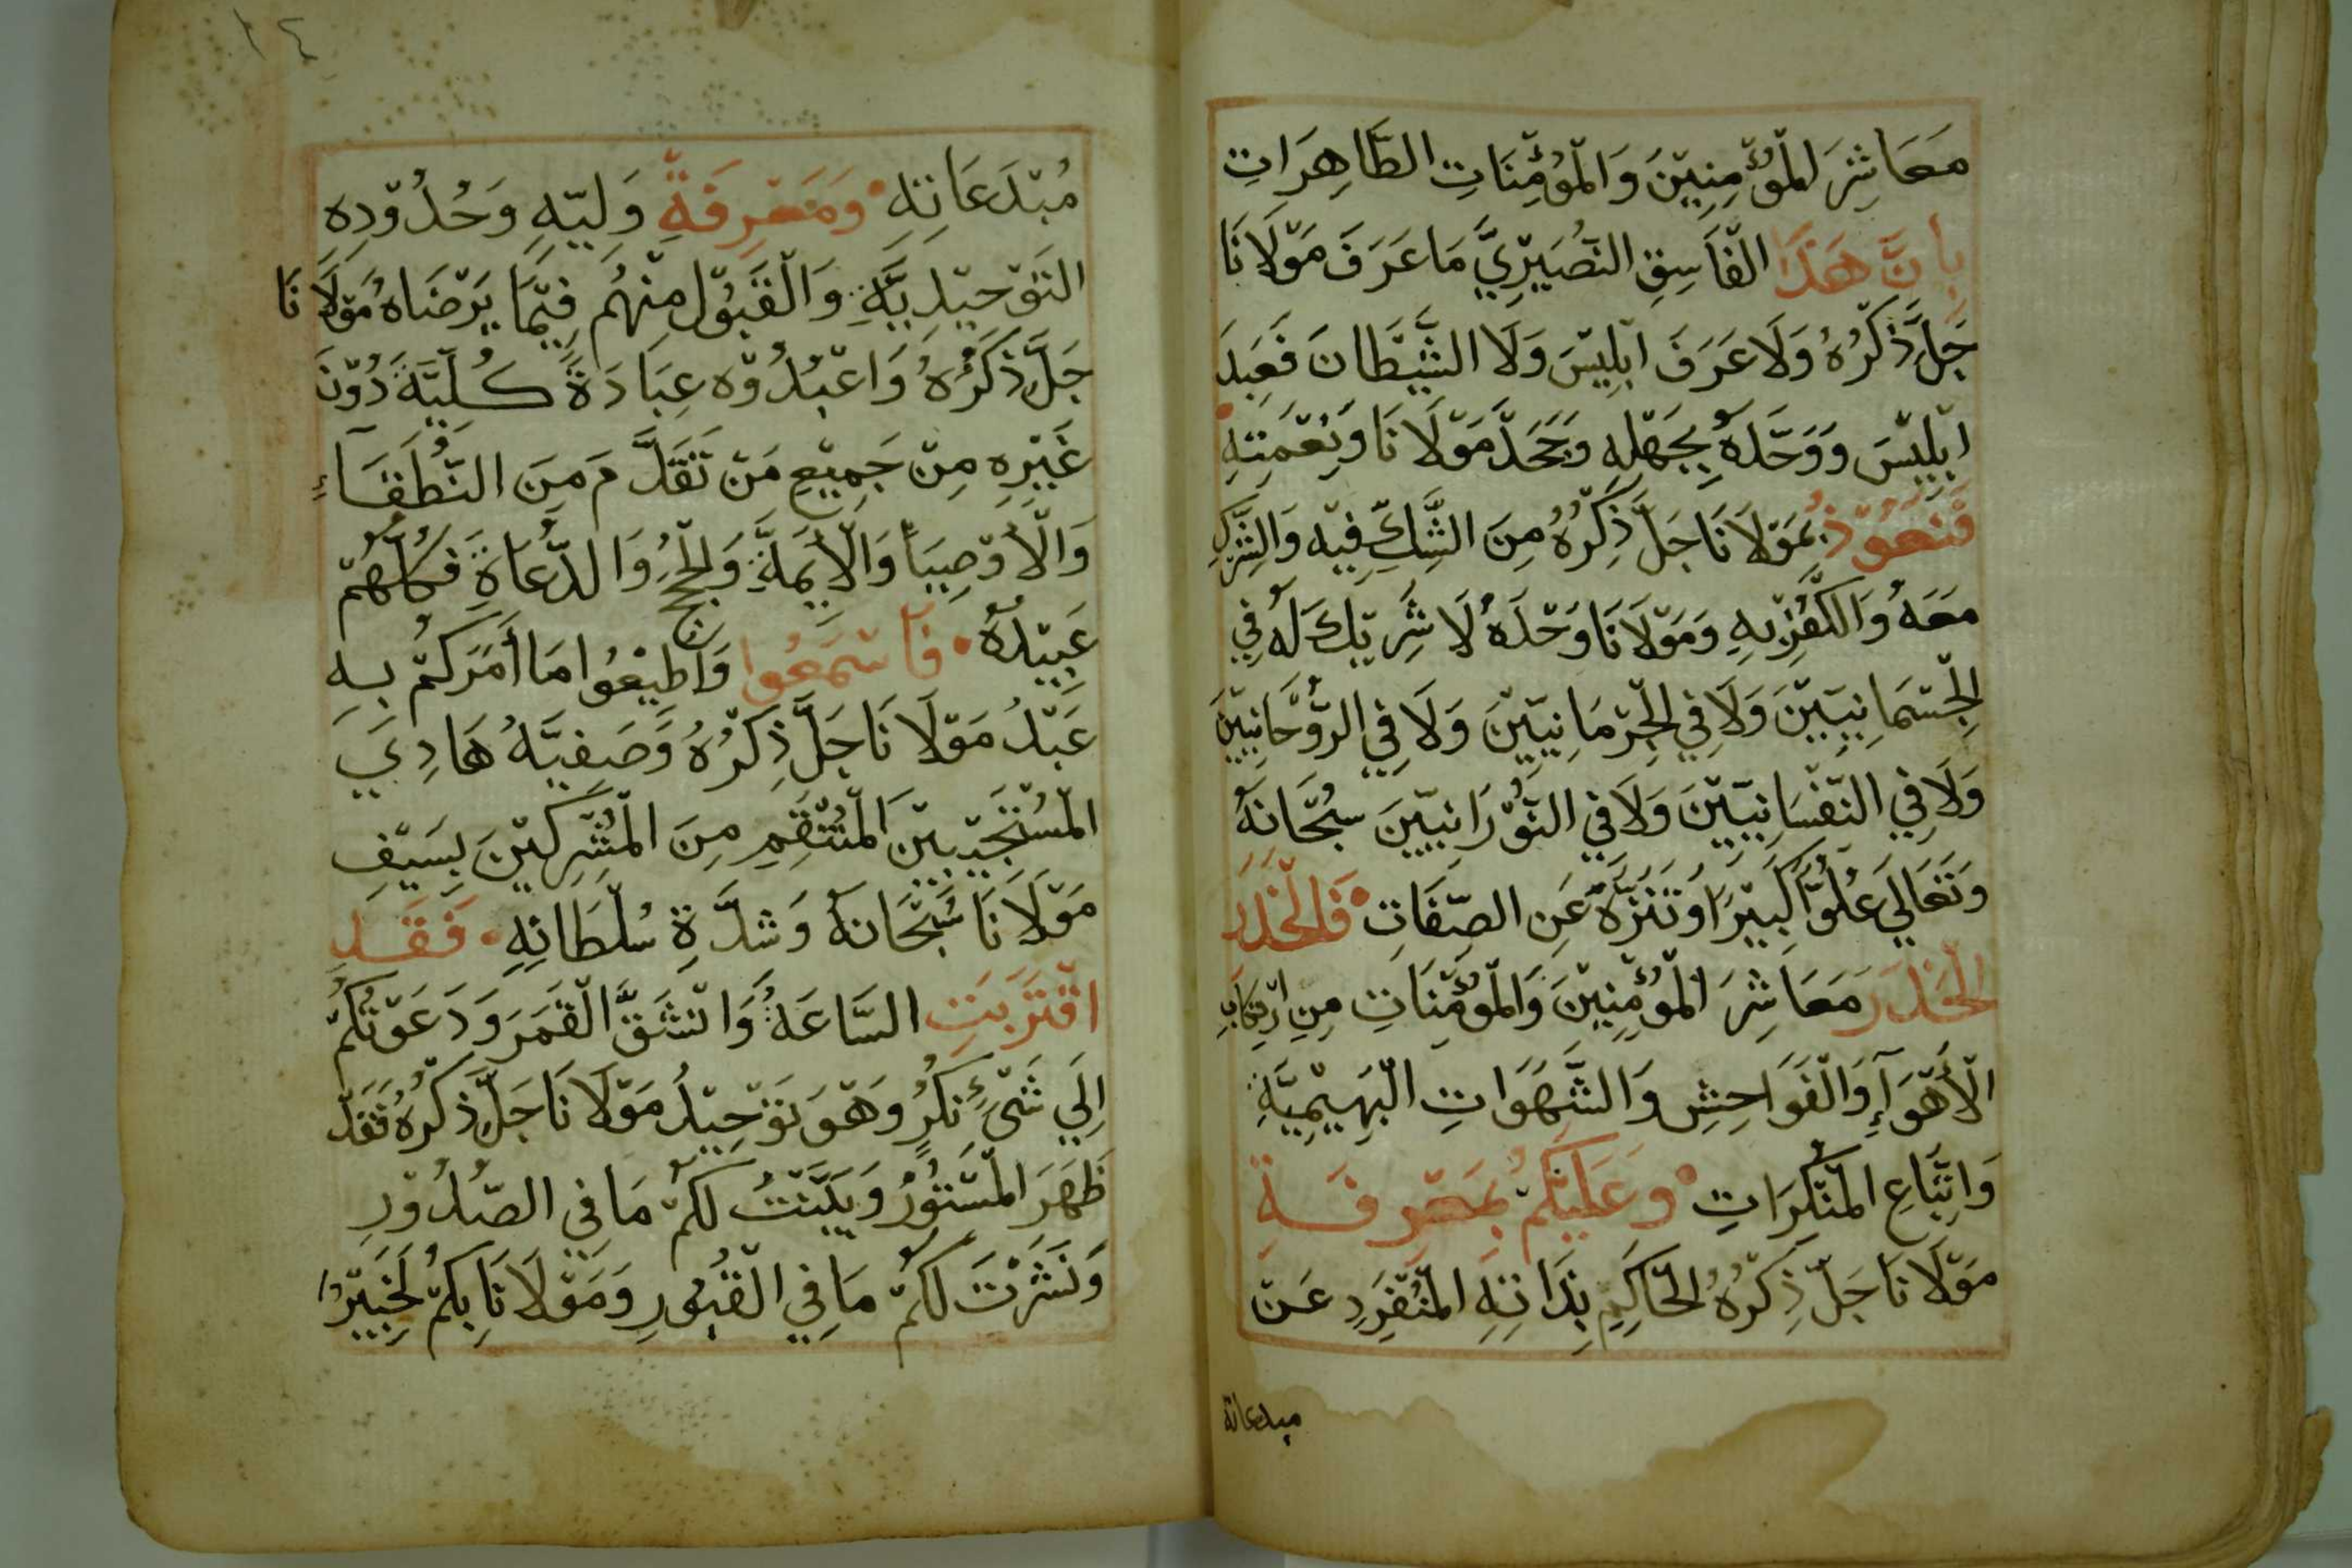 مَعَاشِرَ الْمُؤْمِنِيْنَ وَالْمُؤْمِنَاتِ الطَّاهِرَاتِ
بِانَّ هَذَا الْفَاسِقِ النُّصَيْرِيِّ مَا عَرَفَ مَوْلَانَا
جَلَّ ذِكْرُهُ وَلَا عَرَفَ ابْلِيْسَ وَلَا الشَّيْطَانَ فَعَبَدَ
ابْلِيْسَ وَوَحَّدَهُ بِجَهْلِهِ وَجَحَدَ مَوْلَانَا وَنِعْمَتِهِ
فَنَعُوْذُ بِمَوْلَانَا جَلَّ ذِكْرُهُ مِنَ الشَّكِّ فِيْهِ وَالشِّرْكِ
مَعَهُ وَالْكُفْرِ بِهِ وَمَوْلَانَا وَحْدَهُ لَا شَرِيْكَ لَهُ فِي
الْجِسْمَانِيِّيْنَ وَلَا فِي الْجِرْمَانِيِّيْنَ وَلَا فِي الرُّوْحَانِيِّيْنَ
وَلَا فِي النَّفْسَانِيِّيْنَ وَلَا فِي النُّوْرَانِيِّيْنَ سُبْحَانَهُ
وَتَعَالِي عَلُوًّا كَبِيْرًا وَتَنَزَّهَ عَنِ الصِّفَاتِ • فَالْحَذَرَ
الْحَذَرَ مَعَاشِرَ الْمُؤْمِنِيْنَ وَالْمُؤْمِنَاتِ مِنِ ارْتِكَابِ
الْأَهْوَآءِ وَالْفَوَاحِشِ وَالشَّهَوَاتِ الْبَهِيْمِيَّةِ
وَاتِّبَاعِ الْمُنْكَرَاتِ • وَعَلَيْكُمْ بِمَعْرِفَةِ
مَوْلَانَا جَلَّ ذِكْرُهُ الْحَاكِمِ بِذَاتِهِ الْمُنْفَرِدِ عَنْ
مبدعاته
١٤
مُبْتَدَعَاتِهِ • وَمَعْرِفَةِ وَلِيِّهِ وَحُدُوْدِهِ
التَّوْحِيْدِيَّةِ وَالْقَبُوْلِ مِنْهُم فِيْمَا يَرْضَاهُ مَوْلَانَا
جَلَّ ذِكْرُهُ وَاعْبُدُوْهُ عِبَادَةً كُلِّيَّةً دُوْنَ
غَيْرِهِ مِنْ جَمِيْعِ مَنْ تَقَدَّمَ مِنَ النُّطَقَآءِ
وَالْأَوْصِيَآ وَالْأَيِمَّةِ وَالْحُجَجِ وَالدُّعَاةِ فَكُلُّهُمْ
عَبِيْدُهُ • فَاسْمَعُوا وَاطِيْعُوا مَا أَمَرَكُمْ بِهِ
عَبْدُ مَوْلَانَا جَلَّ ذِكْرُهُ وَصَفِيَّهُ هَادِيَ
الْمُسْتَجِيْبِيْنَ الْمُنْتَقِمِ مِنَ الْمُشْرِكِيْنَ بِسَيْفِ
مَوْلَانَا سُبْحَانَهُ وَشِدَّةِ سُلْطَانِهِ • فَقَدِ
اقْتَرَبَتِ السَّاعَةُ وَانْشَقَّ الْقَمَرَ وَدَعَوْتُكُمْ
اِلَي شَيْءٍ نُكُرٍ وَهْوَ تَوْحِيْدُ مَوْلَانَا جَلَّ ذِكْرُهُ فَقَدْ
ظَهَرَ الْمَسْتُوْرُ وَبَيَّنْتُ لَكُمْ مَا فِي الصُّدُوْرِ
وَنَشَرْتَ لَكُمْ مَا فِي الْقُبُوْرِ وَمَوْلَانَا بِكُمْ لَخَبِيْرُ